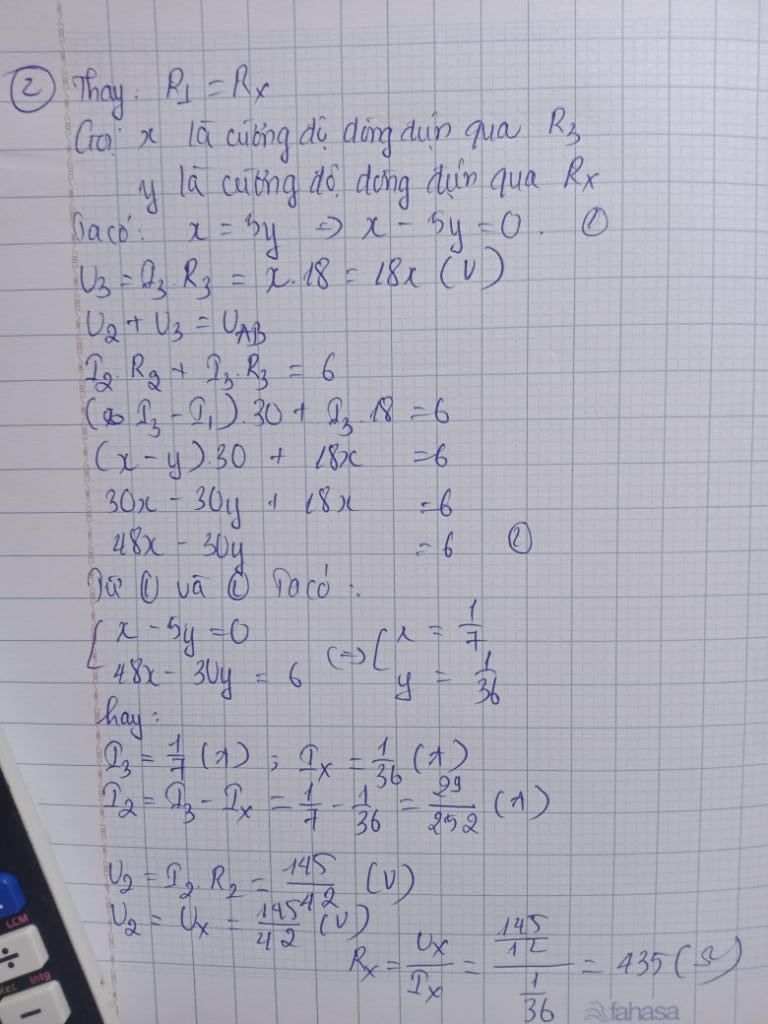 ② Thay: R1 = Rx
Gọi x là cường độ dòng điện qua R3
y là cường độ dòng điện qua Rx
Ta có: x = 5y => x - 5y = 0. ①
U3 = I3.R3 = x.18 = 18x (V)
U2 + U3 = UAB
I2.R2 + I3.R3 = 6
(I3 - I1).30 + I3.18 = 6
(x - y).30 + 18x = 6
30x - 30y + 18x = 6
48x - 30y = 6 ②
Từ ① và ② Ta có:
{ x - 5y = 0
48x - 30y = 6 (=> { x = 1/7
y = 1/36
hay:
I3 = 1/7 (A) ; Ix = 1/36 (A)
I2 = I3 - Ix = 1/7 - 1/36 = 29/252 (A)
U2 = I2.R2 = 145/42 (V)
U2 = Ux = 145/42 (V)
Rx = Ux/Ix = 145/12 / 1/36 = 435 (Ω)
fahasa
LCM
÷
Rec
Intg
−